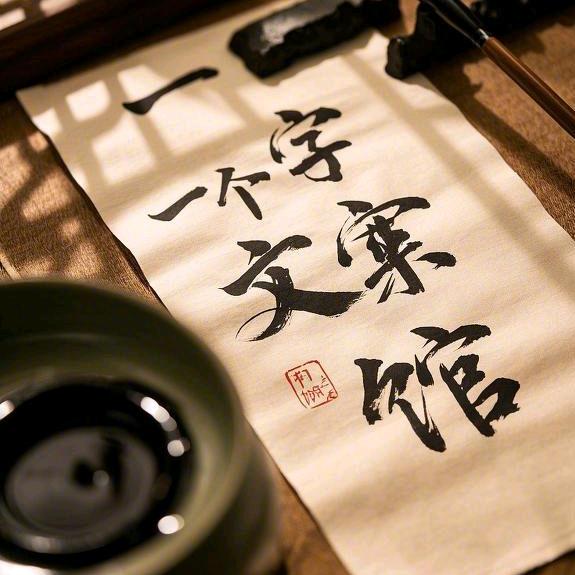 一
字
一个
文案
馆